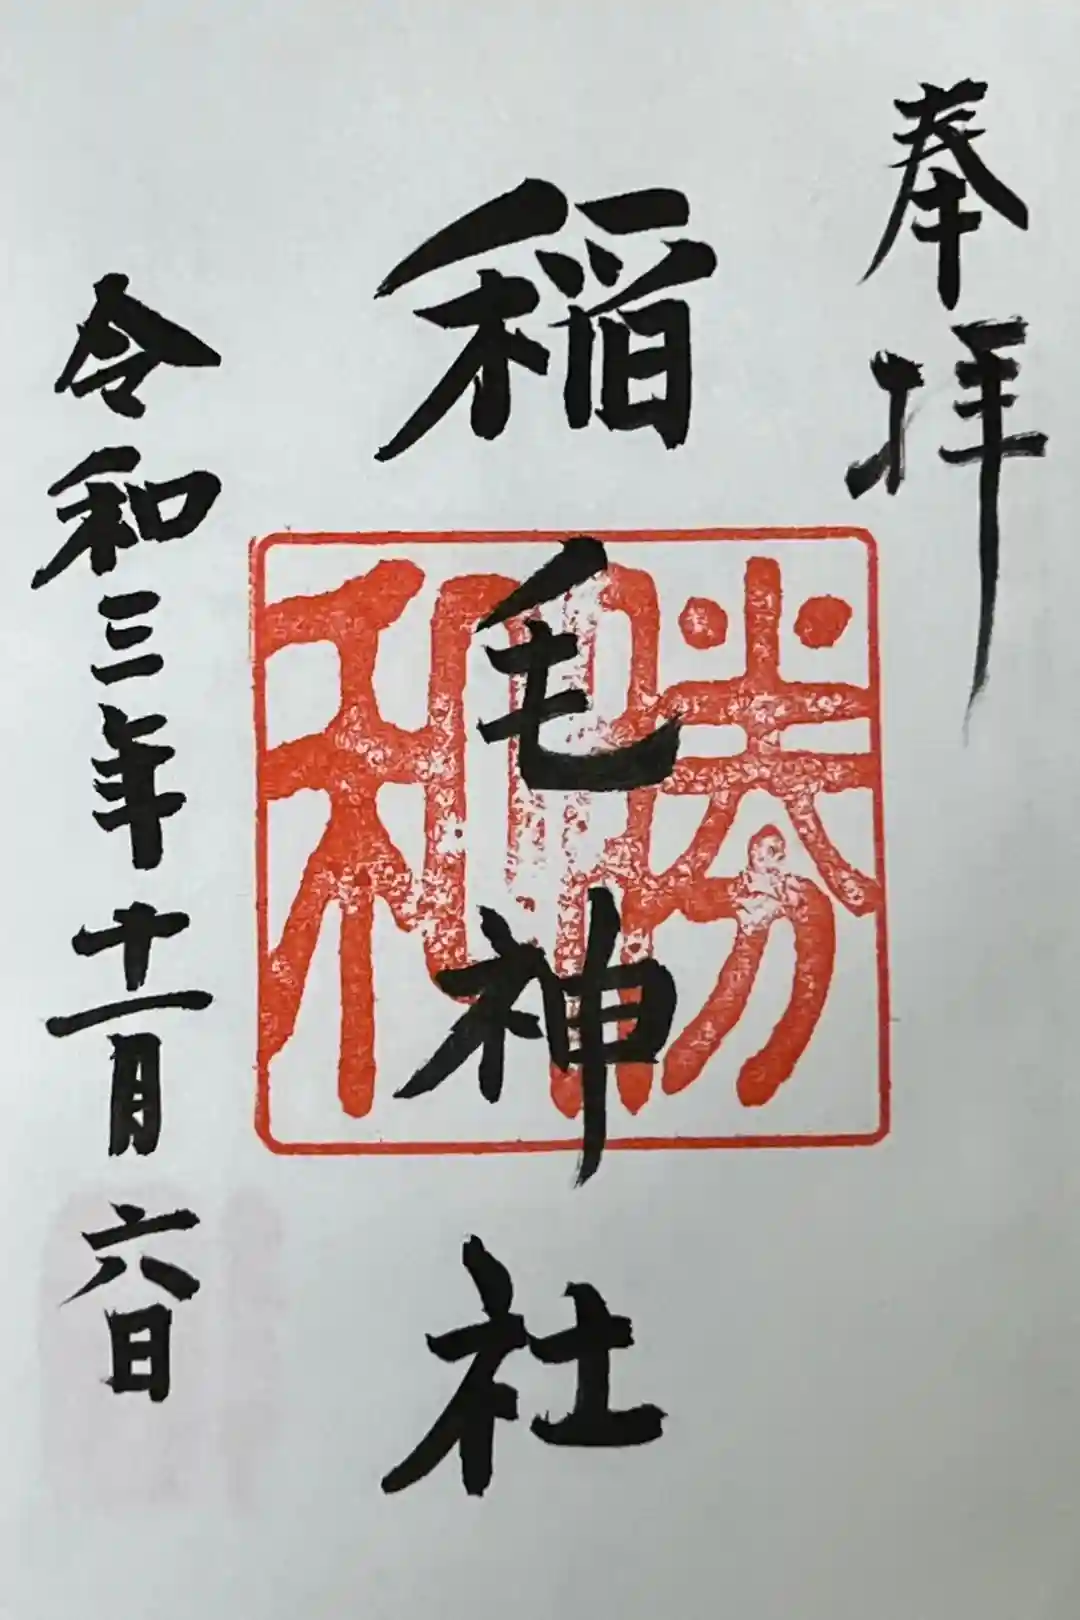 奉拝
稲毛神社
勝和
令和三年十一月六日